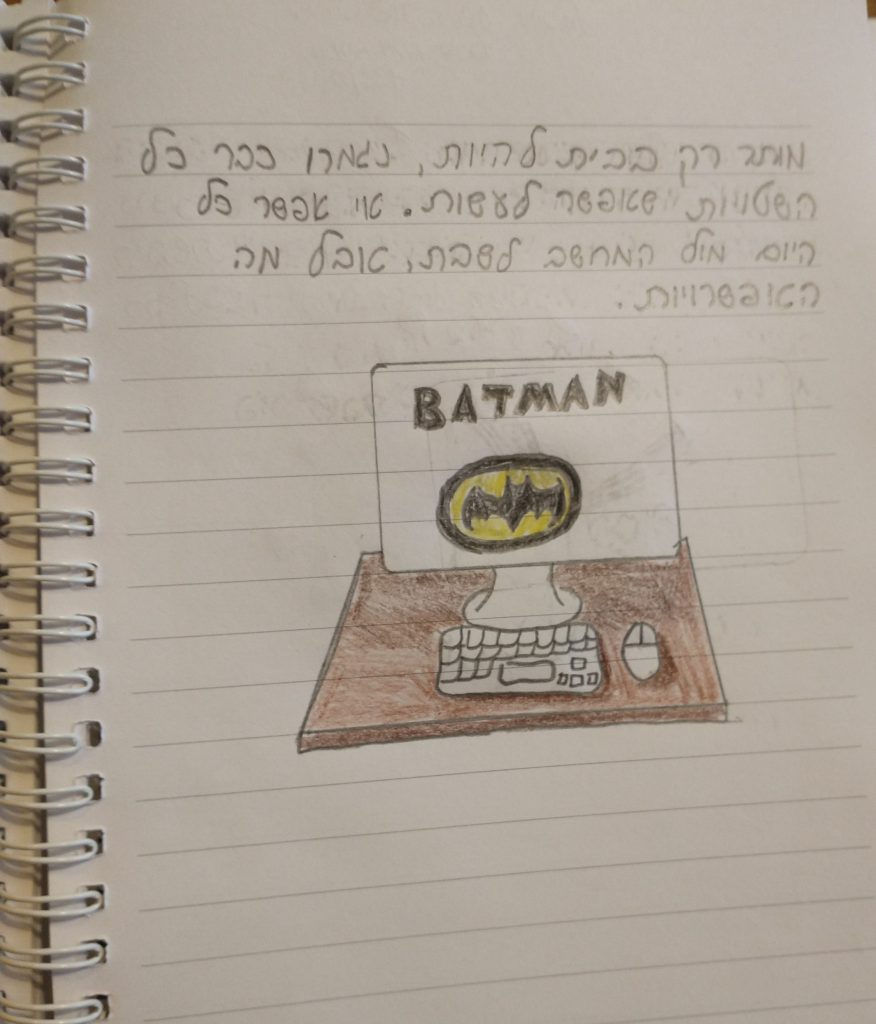 מותר רק בבית להיות, נגמרו כבר כל
השטויות שאפשר לעשות. אי אפשר כל
היום מול המחשב לשבת, אבל מה
האפשרויות.
BATMAN